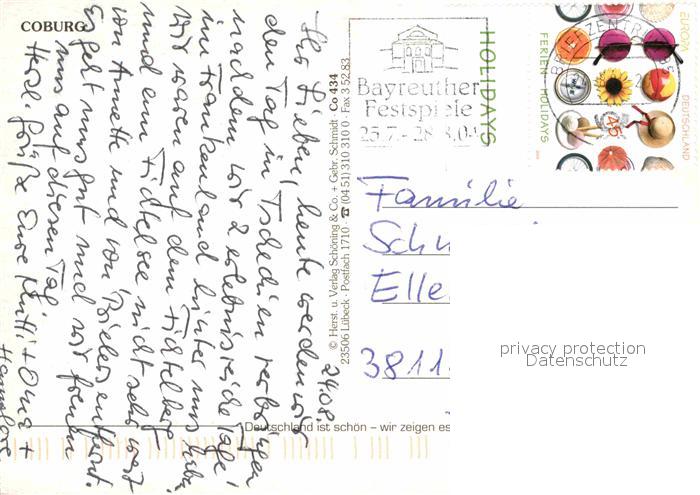 COBURG
24.08.
Ihr Lieben, heute werden wir
den Tag in Tschechien verbringen
nachdem wir 2 erlebnisreiche Tage
im Frankenland hinter uns haben.
Wir waren auf dem Fichtelberg
und am Fichtelsee nicht sehr weit
von Annette und von Bielers entfernt.
Es geht uns gut und wir freuen
uns auf diesen Tag.
Herzl. Grüße Eure Mutti + Oma +
Hannelore
© Herst. u. Verlag Schöning & Co. + Gebr. Schmidt · Co 434
23506 Lübeck · Postfach 1710 · ☎ (04 51) 310 310 0 · Fax 3 52 83
Deutschland ist schön – wir zeigen es
Bayreuther
Festspiele
25.7.-28.8.04
HOLIDAYS
BRIEFZENTRUM
FERIEN · HOLIDAYS
45
EUROPA
DEUTSCHLAND
Familie
Sch
Elle
3811
privacy protection
Datenschutz